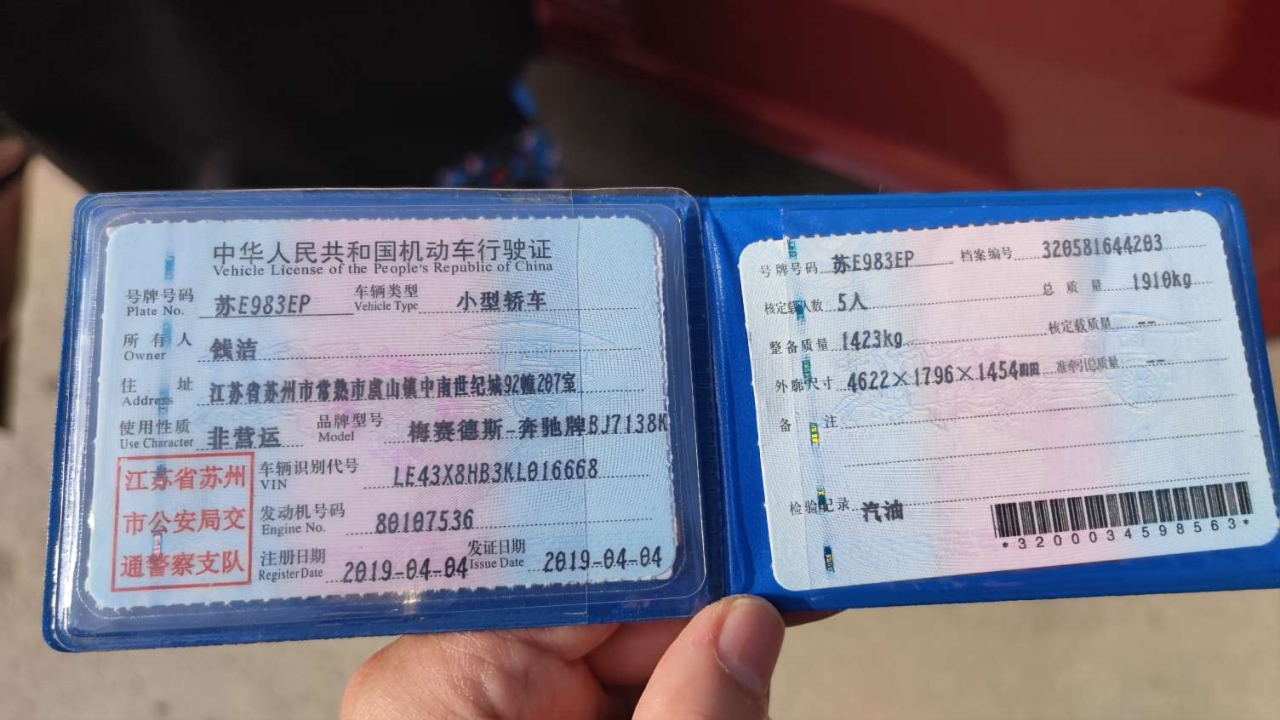 中华人民共和国机动车行驶证
Vehicle License of the People's Republic of China
号牌号码 苏E983EP 车辆类型 小型轿车
Plate No. Vehicle Type
所有人 钱洁
Owner
住址 江苏省苏州市常熟市虞山镇中南世纪城92幢207室
Address
使用性质 非营运 品牌型号 梅赛德斯-奔驰牌BJ7138K
Use Character Model
江苏省苏州
市公安局交
通警察支队
车辆识别代号 LE43X8HB3KL016668
VIN
发动机号码 80107536
Engine No.
注册日期 2019-04-04 发证日期 2019-04-04
Register Date Issue Date
号牌号码 苏E983EP 档案编号 320581644203
核定载人数 5人 总质量 1910kg
整备质量 1423kg 核定载质量 --
外廓尺寸 4622×1796×1454mm 准牵引总质量 --
备注
检验记录 汽油
*3200034598563*